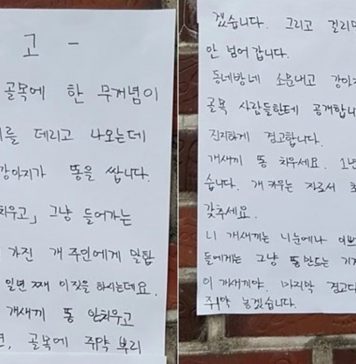 고 -
골목에 한 무개념이
를 데리고 나오는데
강아지가 똥을 쌉니다.
치우고」 그냥 들어가는
가진 개 주인에게 말함
일년 째 이짓을 하시는데요.
개새끼 똥 안치우고
골목에 쥐약 뿌리
겠습니다. 그리고 걸리면
안 넘어 갑니다.
동네방네 소문내고 강아지
골목 사람들한테 공개합니
진지하게 경고합니다.
개새끼 똥 치우세요. 1년
습니다. 개 키우는 자로서
갖추세요.
니 개새끼는 니눈에나 이쁘
들에게는 그냥 똥만드는 기계
이 개새끼야. 마지막 경고다
쥐약 놓겠습니다.